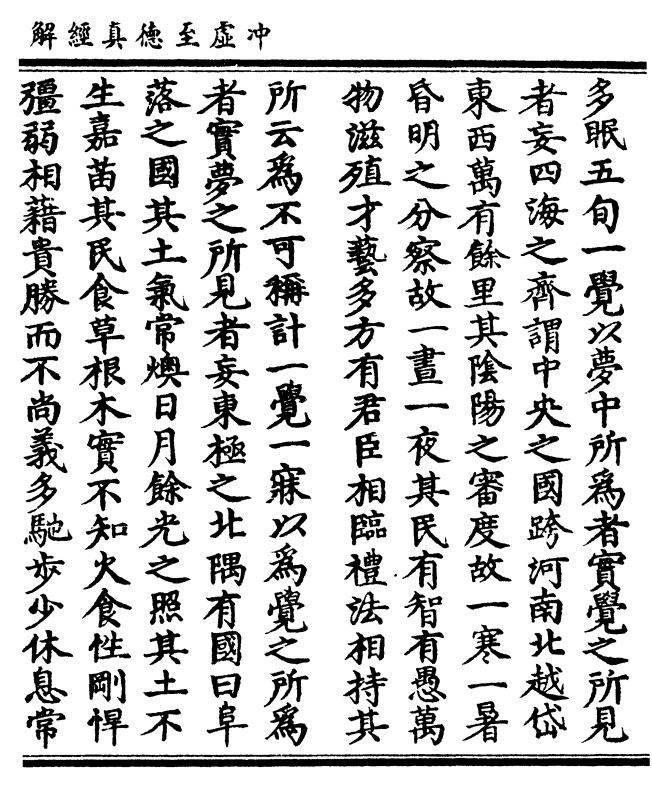 冲虛至德真經解
多眠五旬一覺以夢中所爲者實覺之所見
者妄四海之齊謂中央之國跨河南北越岱
東西萬有餘里其陰陽之審度故一寒一暑
昏明之分察故一晝一夜其民有智有愚萬
物滋殖才藝多方有君臣相臨禮法相持其
所云爲不可稱計一覺一寐以爲覺之所爲
者實夢之所見者妄東極之北隅有國曰阜
落之國其土氣常燠日月餘光之照其土不
生嘉苗其民食草根木實不知火食性剛悍
彊弱相藉貴勝而不尚義多馳步少休息常